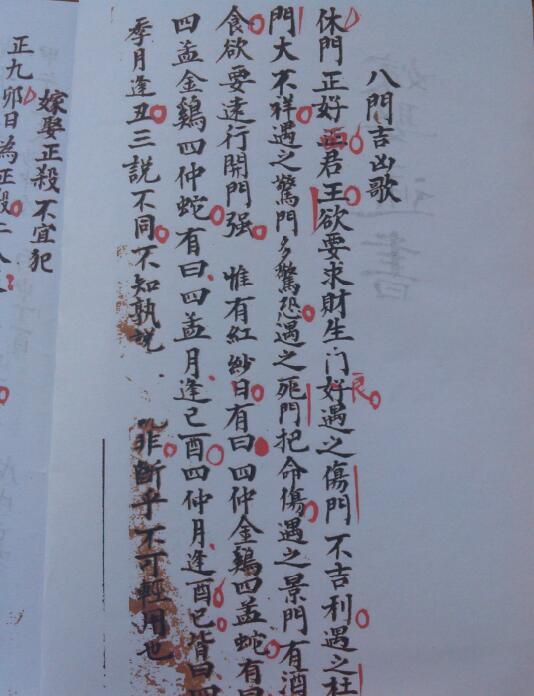 八門吉凶歌
休門正好面君王欲要求財生门好良遇之傷門不吉利遇之杜
門大不祥遇之驚門多驚恐遇之死門把命傷遇之景門有酒
食欲要遠行開門强 惟有紅紗日有曰四仲金鷄四孟蛇有曰
四孟金鷄四仲蛇有曰四孟月逢巳酉四仲月逢酉巳皆曰四
季月逢丑三説不同不知孰説 非斷乎不可輕用也
嫁娶正殺不宜犯
正九卯日為正殺二八